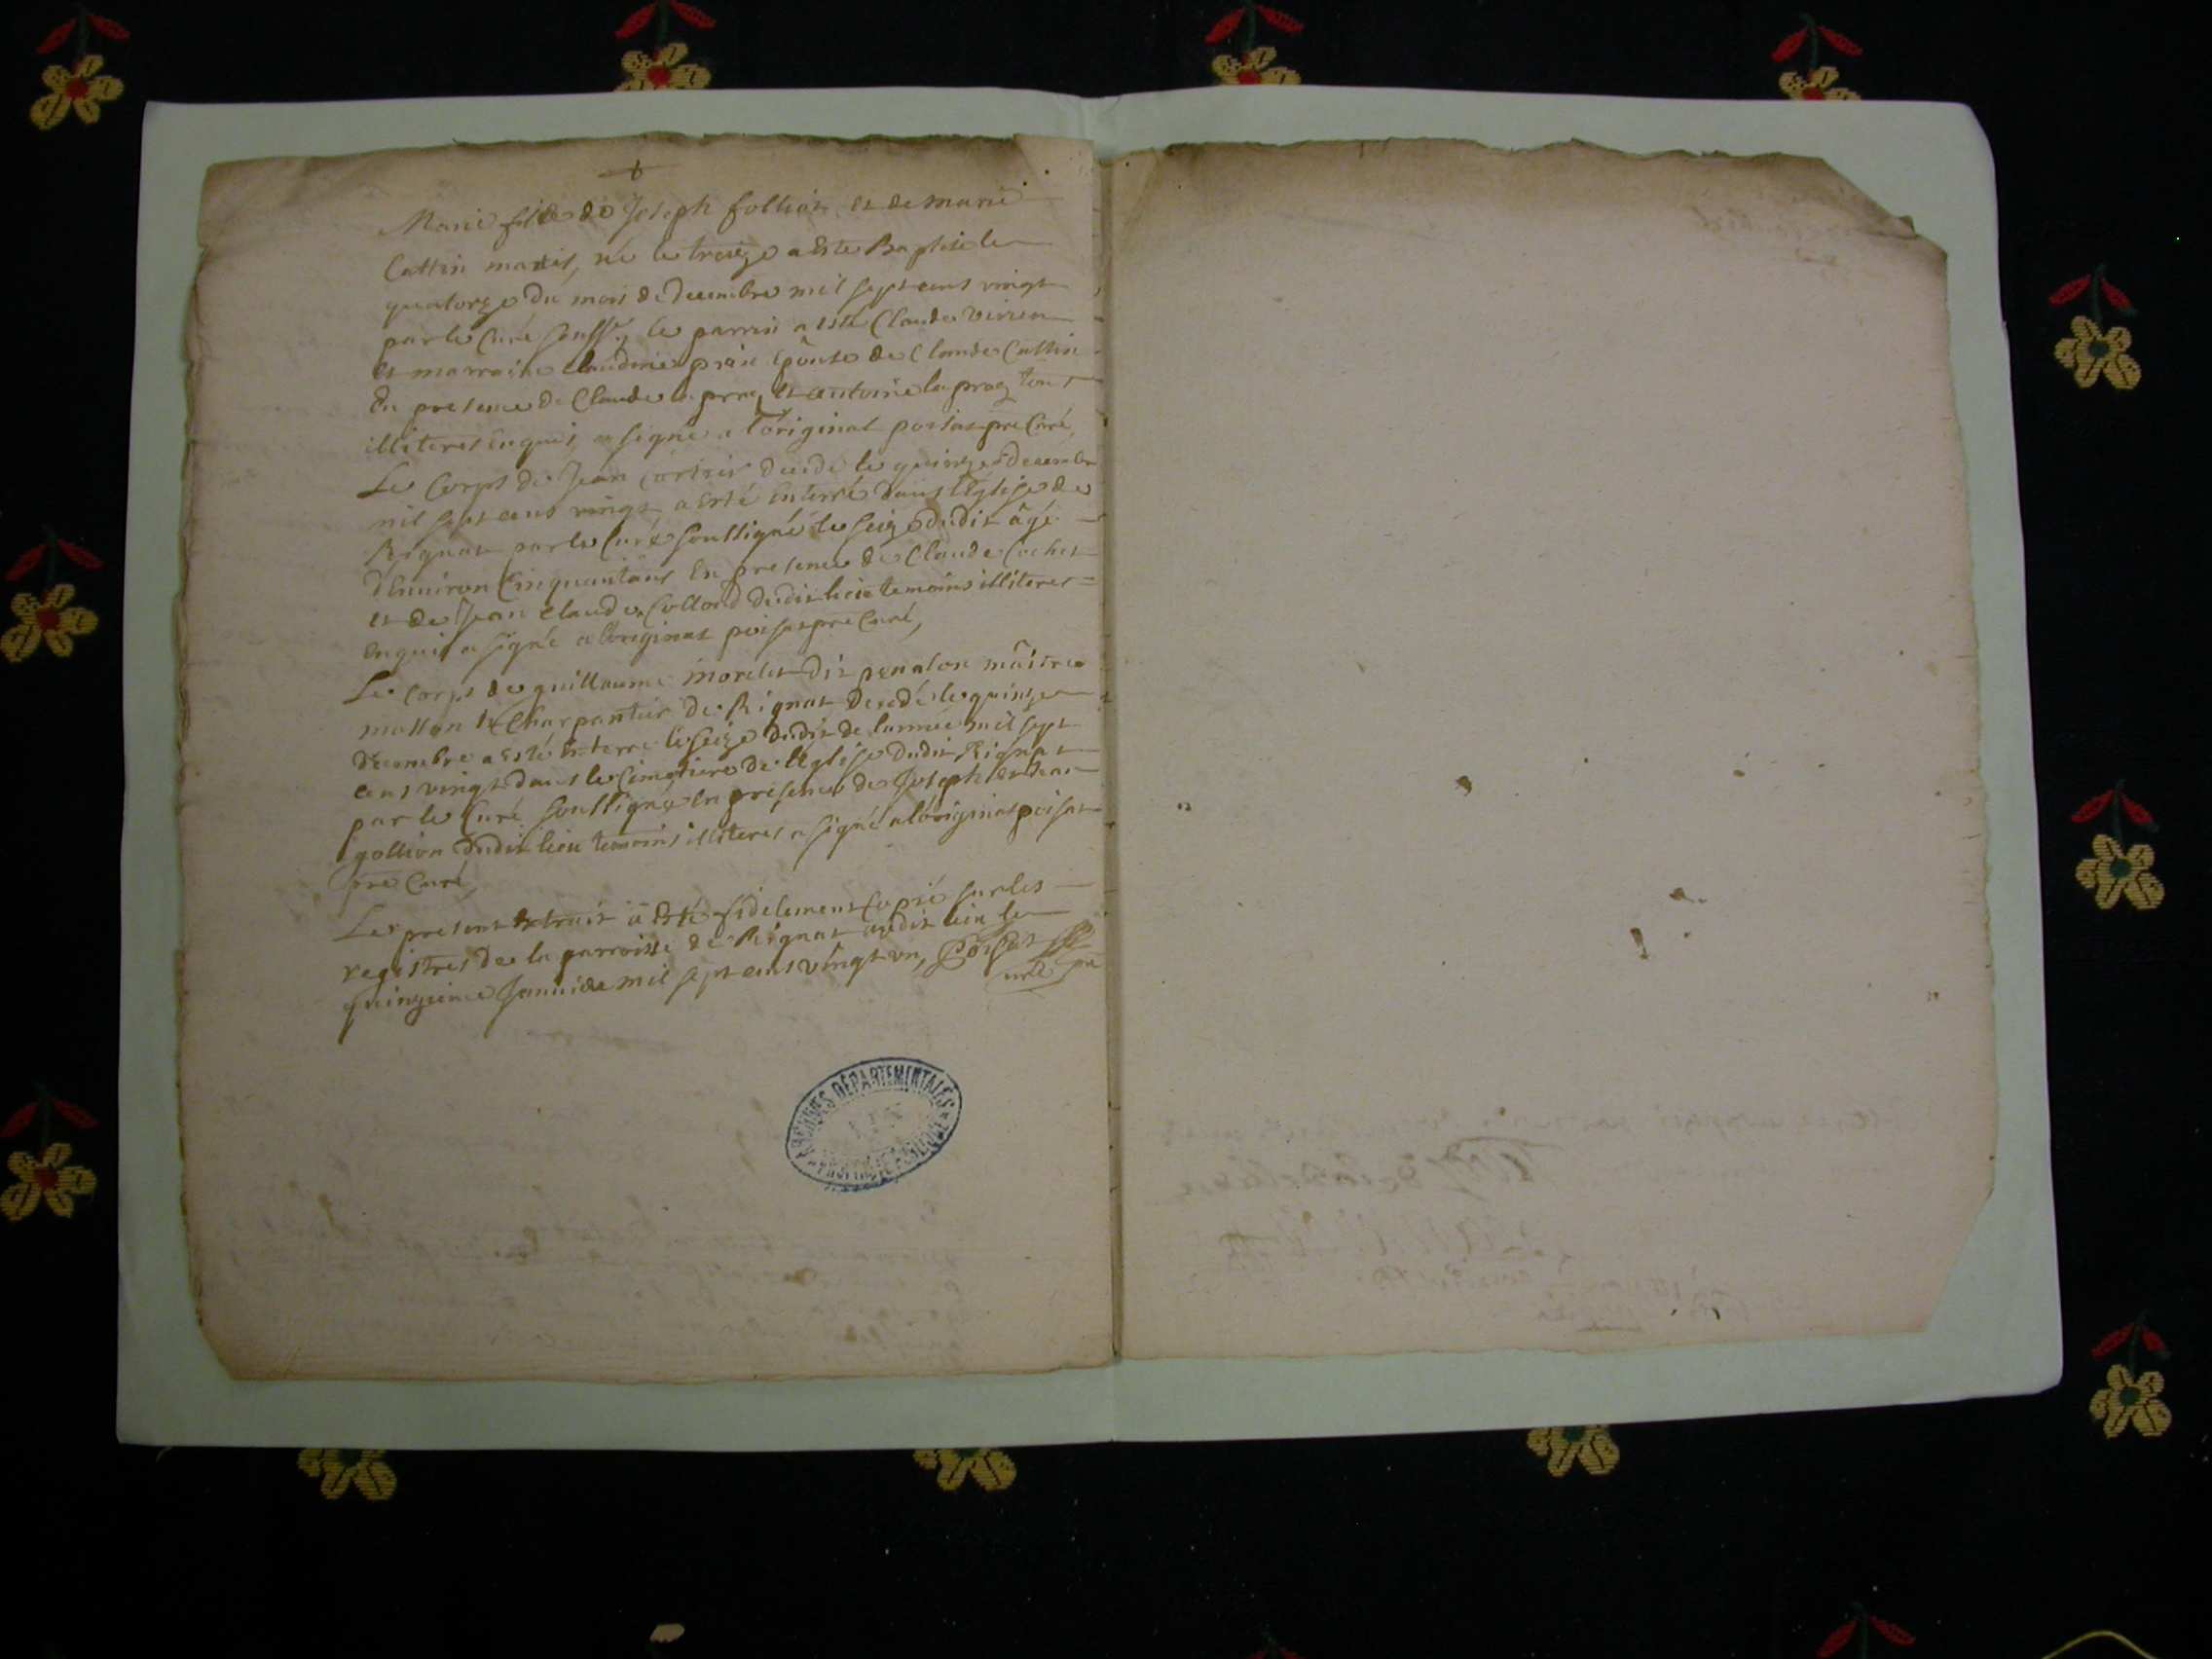 Marie fille de Joseph follion et de marie
Cattin mariés, né le treize a Esté Baptisé le
quatorze du mois de Decembre mil sept cens vingt
par le Curé soussé, le parrin a esté Claude
et marraine Claudine épouse de Claude Cattin
En presence de Claude et antoine la tous
illiteres enquis, a signé a l'original poisat pre Curé
Le Corps de Jean decedé le quinze decembre
mil sept cens vingt a Esté Enterré dans l'Eglise de
Rignat par le Curé soussigné le seize dudit âgé
d'Environ Cinquant'ans En presence de Claude Cochet
et de Jean Claude Colloud dudit lieu temoins illiteres
enquis a signé a l'original poisat pre Curé,
Le Corps de guillaume morelet dit maître
masson & Charpantier de Rignat Decedé le quinze
decembre a Esté Enterré le seize dudit de l'année mil sept
cens vingt dans le Cimetiere de l'Eglise dudit Rignat
par le Curé soussigné En presence de Joseph et Jean
gollion dudit lieu temoins illiteres a signé a l'original poisat
pre Curé,
Le present Extrait a Esté fidelement Copié sur les
registres de la parroisse de Rignat audit lieu le
quinzieme Janvier mil sept cens vingt un, Poisat pre
curé
ARCHIVES DÉPARTEMENTALES